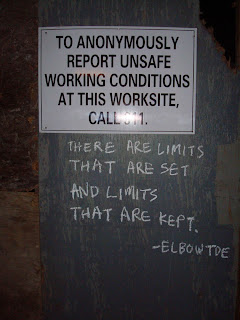 TO ANONYMOUSLY
REPORT UNSAFE
WORKING CONDITIONS
AT THIS WORKSITE,
CALL 311.
THERE ARE LIMITS
THAT ARE SET
AND LIMITS
THAT ARE KEPT.
-ELBOWTOE